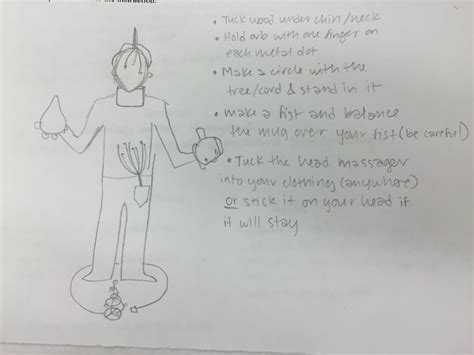 the instruction.
• Tuck wood under chin/neck
• Hold orb with one finger on
each metal dot
• Make a circle with the
tree/cord & stand in it
• make a fist and balance
the mug over your fist (be careful)
• Tuck the head massager
into your clothing (anywhere)
or stick it on your head if
it will stay